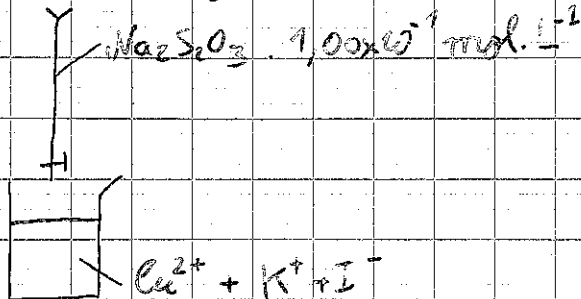 Na₂S₂O₃ . 1,00x10⁻¹ mol.L⁻¹
Cu²⁺ + K⁺ + I⁻